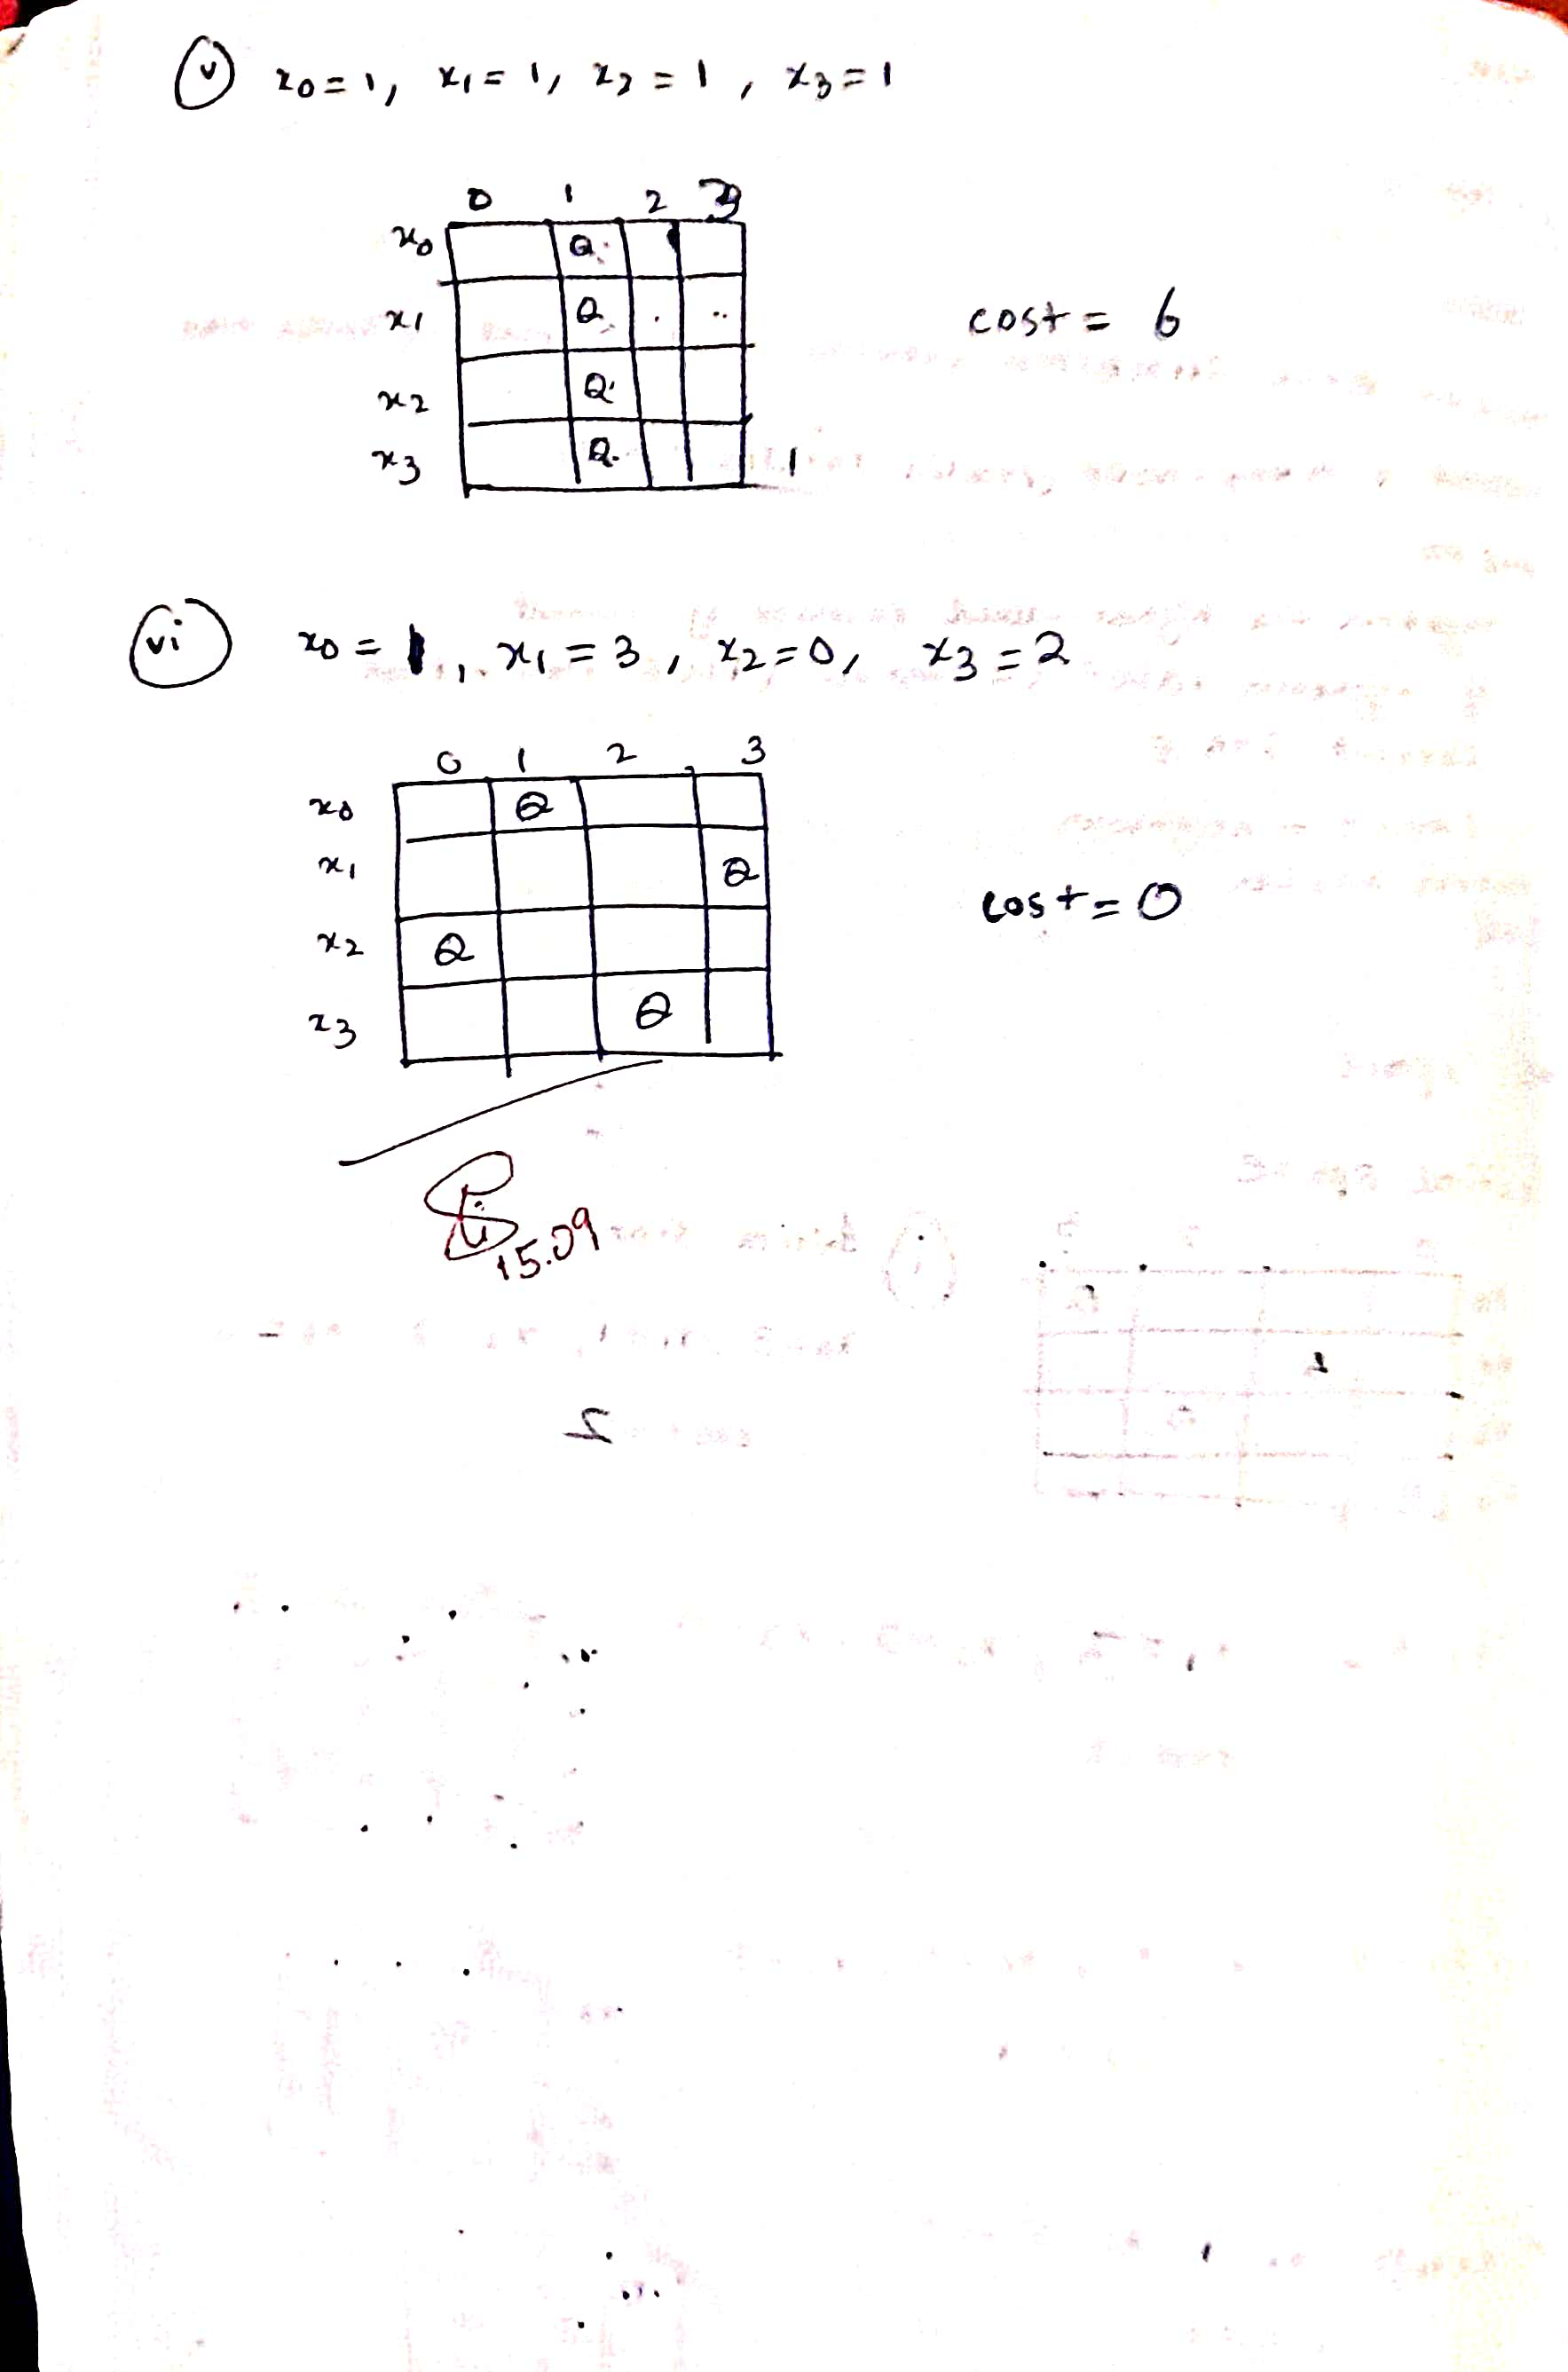 (v) x0=1, x1=1, x2=1, x3=1
0 1 2 3
x0 Q
x1 Q
x2 Q
x3 Q
cost = 6
(vi) x0=1, x1=3, x2=0, x3=2
0 1 2 3
x0 Q
x1 Q
x2 Q
x3 Q
cost=0
15.09